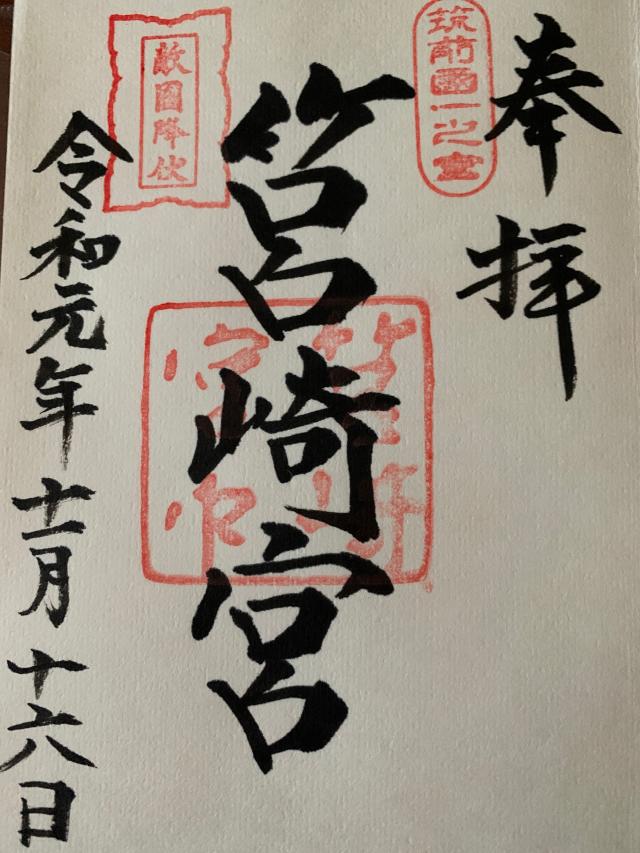 奉拝
筑前國一之宮
筥崎宮
敵國降伏
令和元年十一月十六日